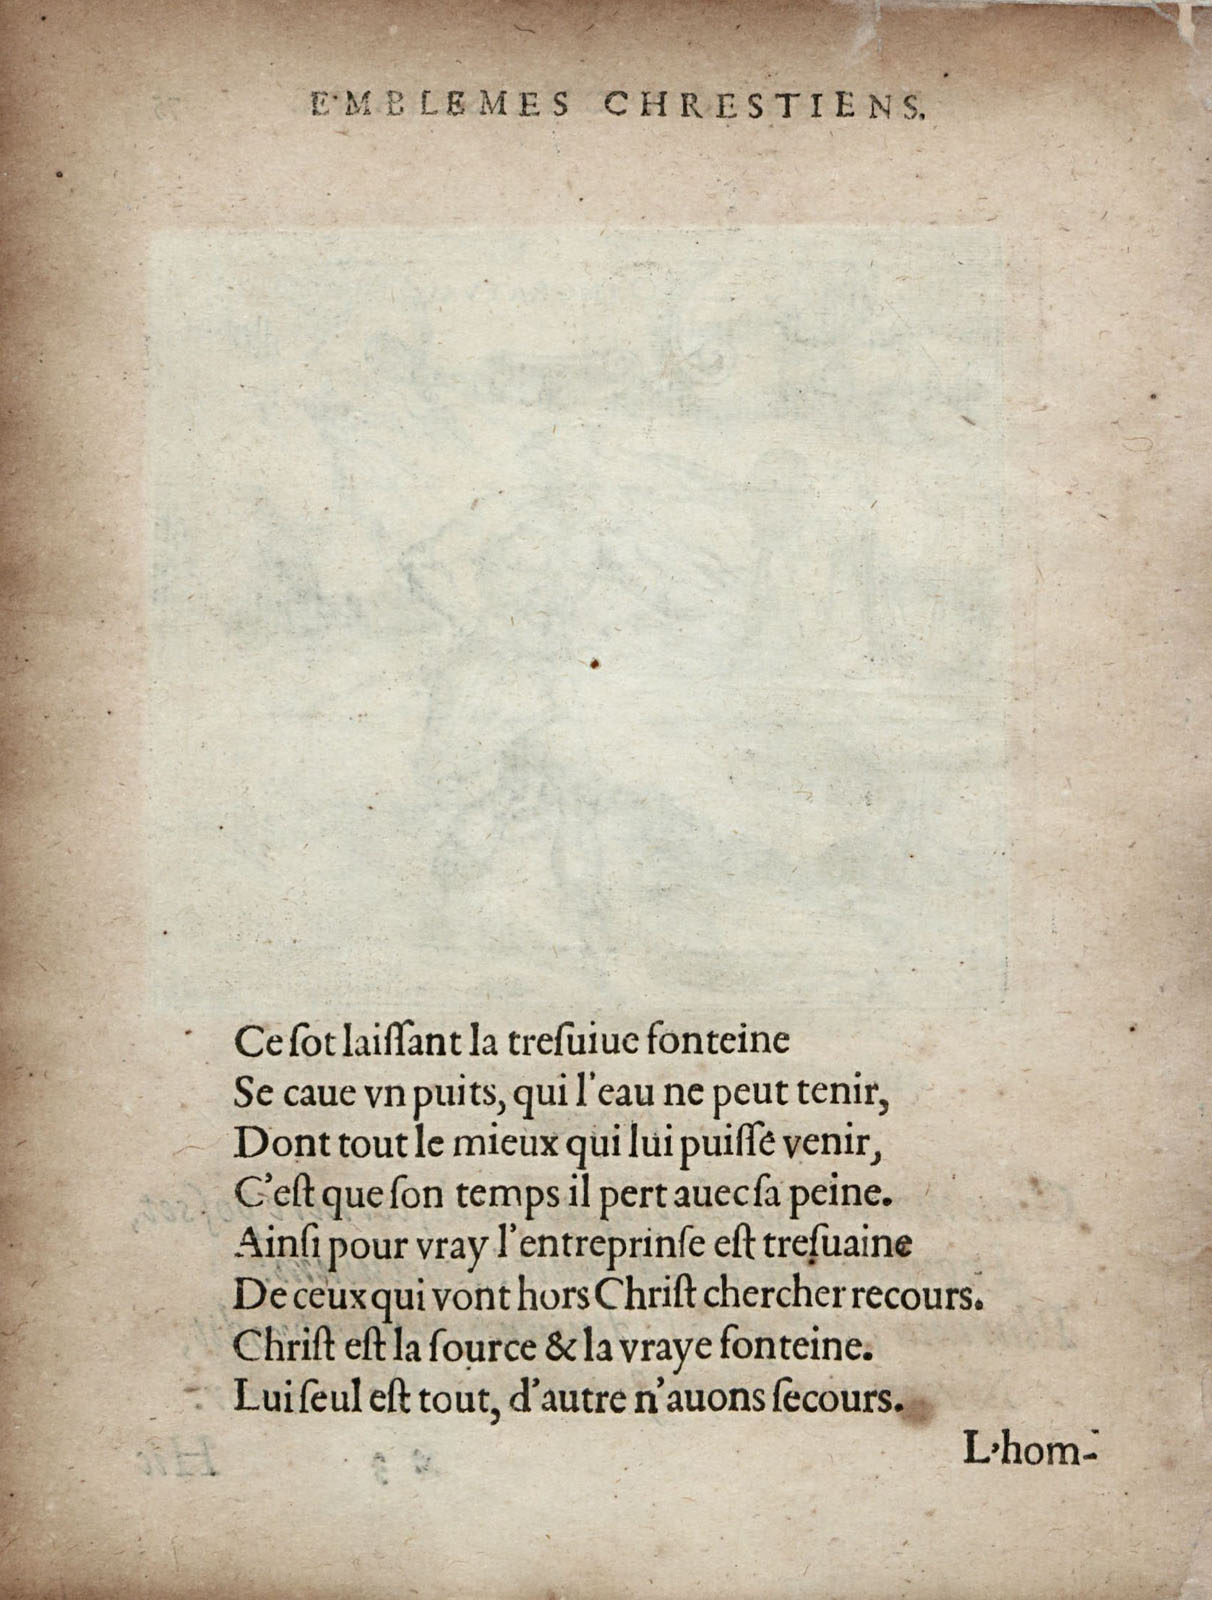 EMBLEMES CHRESTIENS.
Ce ſot laiſſant la treſuiue fonteine
Se caue vn puits, qui l'eau ne peut tenir,
Dont tout le mieux qui lui puiſſe venir,
C'eſt que ſon temps il pert auec ſa peine.
Ainſi pour vray l'entreprinſe eſt treſuaine
De ceux qui vont hors Chriſt chercher recours.
Chriſt eſt la ſource & la vraye fonteine.
Lui ſeul eſt tout, d'autre n'auons ſecours.
L'hom-